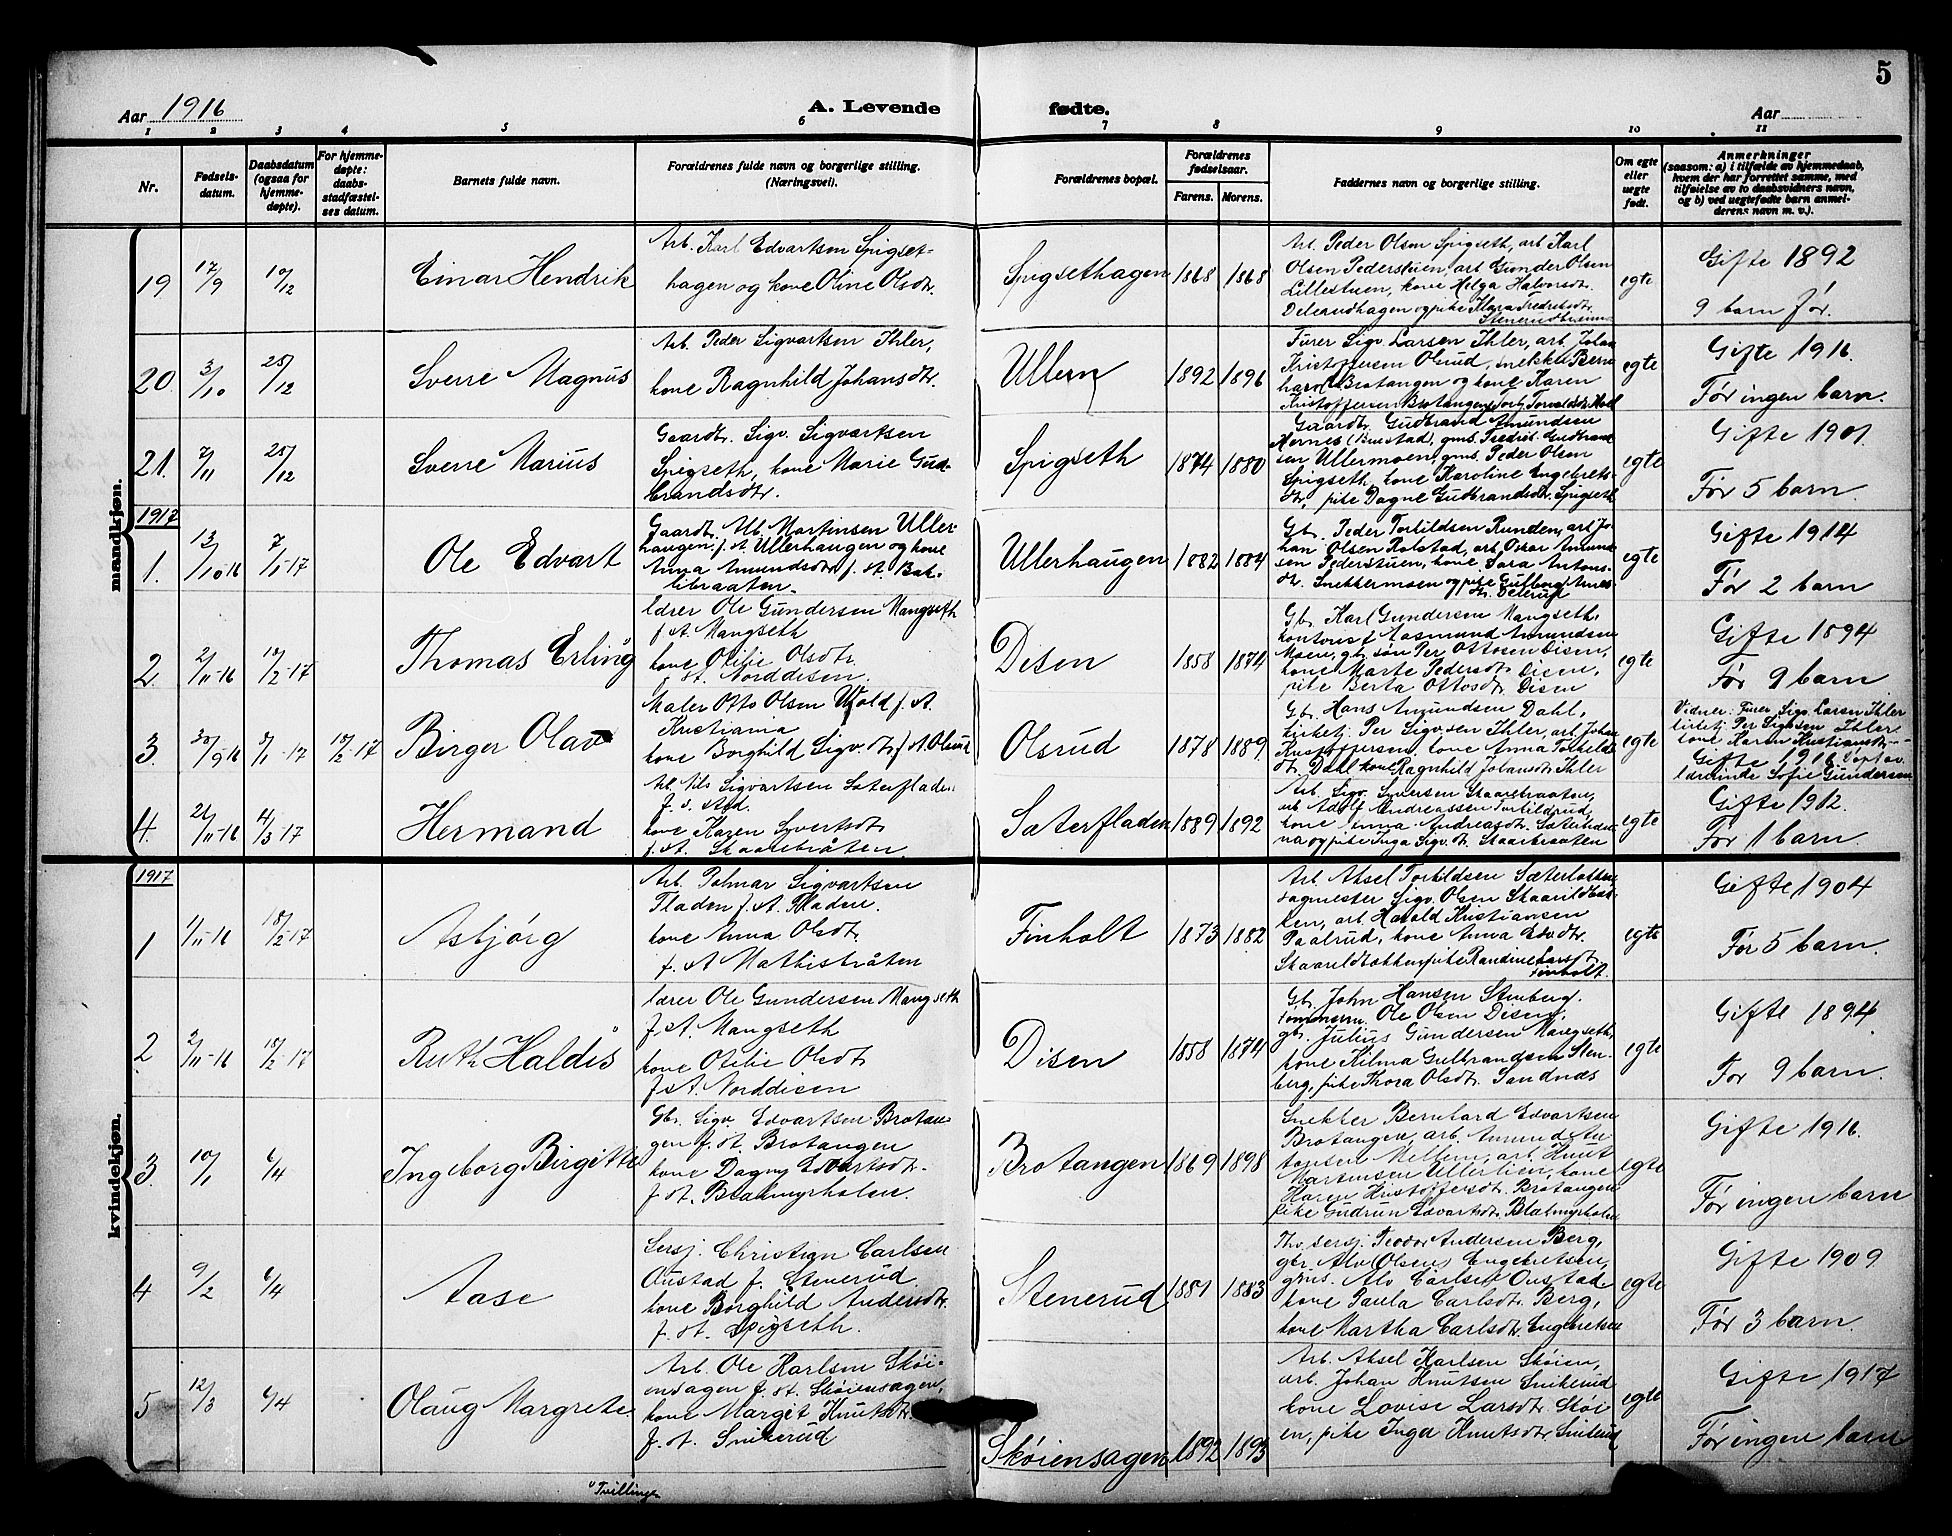 5
Aar 1916
A. Levende
fødte.
Aar
1 2 3 4 5 6 7 8 9 10 11
Nr.
Fødselsdatum.
Daabsdatum (ogsaa for hjemmedøpte).
For hjemmedøpte: daabsstadfæstelses datum.
Barnets fulde navn.
Forældrenes fulde navn og borgerlige stilling. (Næringsvei).
Forældrenes bopæl.
Forældrenes fødselsaar.
Farens. Morens.
Faddernes navn og borgerlige stilling.
Om egte eller uegte født.
Anmerkninger
(saasom: a) i tilfælde av hjemmedaab,
hvem der har forrettet samme, med
tilføielse av to daabsvidners navn,
og b) ved uegtefødte barn anmel-
derens navn m. v.).
mandkjøn.
19 17/9 10/12 Einar Hendrik
Arb. Karl Edvartsen Spigset-
hagen og kone Oline Olsdtr.
Spigsethagen 1868 1868
Arb. Peder Olsen Spigseth, arb. Karl
Olsen Pederstuen, arb. Gunder Olsen
Lillestuen, kone Helga Halvorsdtr.
egte
Gifte 1892
9 barn før.
20. 3/10 25/12 Sverre Magnus
Arb. Peder Sigvartsen Ihler,
kone Ragnhild Johansdtr.
Ullern 1892 1896
Furer Sigv. Larsen Ihler, arb. Johan
Kristoffersen Olsrud, snekker Bern-
hard Brotangen og kone Karen
Kristoffersen Brotangen
egte
Gifte 1916.
Før ingen barn.
21. 7/11 25/12 Sverre Marius
Gaardbr. Sigv. Sigvartsen
Spigseth, kone Marie Gud-
brandsdtr.
Spigseth 1874 1880
Gaardbr. Gudbrand Amundsen
Hernes (Bustad), gms. Fredrik Gudbrand
sen Ullermoen, gms. Peder Olsen
Spigseth, kone Karoline Engebrets-
dtr, pike Dagne Gudbrandsdtr. Spigseth
egte
Gifte 1901.
Før 5 barn.
1917
1. 13/10-16 7/1-17 Ole Edvart
Gaardbr. Alb. Martinsen Uller-
haugen f. st. Ullerhaugen og kone
Anna Amundsdtr f. st. Bak-
libraaten.
Ullerhaugen 1882 1884
Gb. Peder Torkildsen Runden, arb. Jo-
han Olsen Rolstad, arb. Oskar Amund-
sen Pederstuen, kone Sara Antons-
dtr. Snekkermoen og pike Gulborg
egte
Gifte 1914
Før 2 barn
2. 2/11-16 18/2-17 Thomas Erling
Lærer Ole Gundersen Mangseth
f. st. Mangseth
kone Otilie Olsdtr.
f. st. Norddisen.
Disen 1858 1874
Gb. Karl Gundersen Mangseth,
kontorist Aasmund Amundsen
Moen, gb. søn Per Ottosen Disen,
kone Marte Pedersdtr. Disen,
pike Berta Ottosdtr. Disen
egte
Gifte 1894
Før 9 barn
3 30/9-16 5/1-17 18/2-17 Birger Olav
Maler Otto Olsen Wold f. st.
Kristiania
kone Borghild Sigv.dtr f. st. Olsrud
Olsrud 1878 1889
Gb. Hans Amundsen Dahl,
Per Sigv.sen Ihler, arb. Johan
Kristoffersen, kone Anna Torkilds-
dtr. Dahl kone Ragnhild Johansdtr. Ihler
egte
Vidner: Furer Sigv. Larsen Ihler
Per Sigv.sen Ihler
kone Karen Kristiansdtr
Gifte 1916. Døpt av
lærerinde Sofie Gundersen
4. 26/11-16 4/3-17 Hermand
Arb. Nils Sigvartsen Sæterfladen
f. s. sted.
kone Karen Syvertsdtr
f. st. Skaarebråten.
Sæterfladen 1889 1892
Arb. Sigv. Syversen Skaarebraaten,
arb Adolf Andreassen Torkildsrud,
kone Anna Andreasdtr.
og pike Inga Sigv.dtr. Skaarebraaten
egte
Gifte 1912.
Før 1 barn.
kvindekjøn.
1917
1 1/11-16 18/2-17 Asbjørg
Arb. Polmar Sigvartsen
Fladen f. st. Fladen.
kone Anna Olsdtr.
f. st Mathisbråten
Finholt 1873 1882
Arb. Aksel Torkildsen Sæterbakken
sagmester Sigv. Olsen Skaarildbak-
ken, arb Harald Kristiansen
Paalrud, kone Anna Edv.dtr.
Skaarildbakken, pike Randine Larsdtr.
Finholt.
egte
Gifte 1904
Før 5 barn.
2 2/11-16 18/2-17 Ruth Haldis
Lærer Ole Gundersen Mangseth
f. st. Mangseth
kone Otilie Olsdtr
f. st. Norddisen
Disen 1858 1874
Gb. John Hansen Stenberg.
Ole Olsen Disen,
gb. Julius Gundersen Mangseth,
kone Hilma Gulbrandsen Sten-
berg, pike Thora Olsdtr. Sandnæs
egte
Gifte 1894.
Før 9 barn.
3. 10/1 6/4 Ingeborg Birgitte
Gbr. Sigv. Edvartsen Brotan-
gen f. st. Brotangen
kone Dagny Edvartsdtr.
f. st. Blålmyrholen.
Brotangen 1869 1898
Snekker Bernhard Edvartsen
Brotangen, arb. Amund An-
tonsen Mellem, arb. Knut
Martinsen Ullerlien, kone
Karen Kristoffersdtr. Brotangen
pike Gudrun Edvartsdtr.
egte
Gifte 1916.
Før ingen barn
4 9/2 6/4 Aase
Sersj. Christian Carlsen
Oustad f. Stenerud
kone Borghild Andersdtr.
f. st. Spigseth.
Stenerud 1881 1883
sersj. Teodor Andersen Berg,
gbr. Alv Olsen Engebretsen,
gms. Alv Carlsen Oustad
kone Paula Carlsdtr. Berg,
kone Martha Carlsdtr. Engebretsen
egte
Gifte 1909
Før 3 barn.
5 12/3 6/4 Olaug Margrete.
Arb. Ole Karlsen Skøi-
ensagen f. st. Skøiensagen,
kone Margit Knutsdtr.
f. st. Snikerud
Skøiensagen 1892 1893
Arb. Aksel Karlsen Skøien,
arb. Johan Knutsen Snikerud
kone Lovise Larsdtr Skøi-
en, pike Inga Knutsdtr Snikerud
egte
Gifte 1917
Før ingen barn
Tvillinger